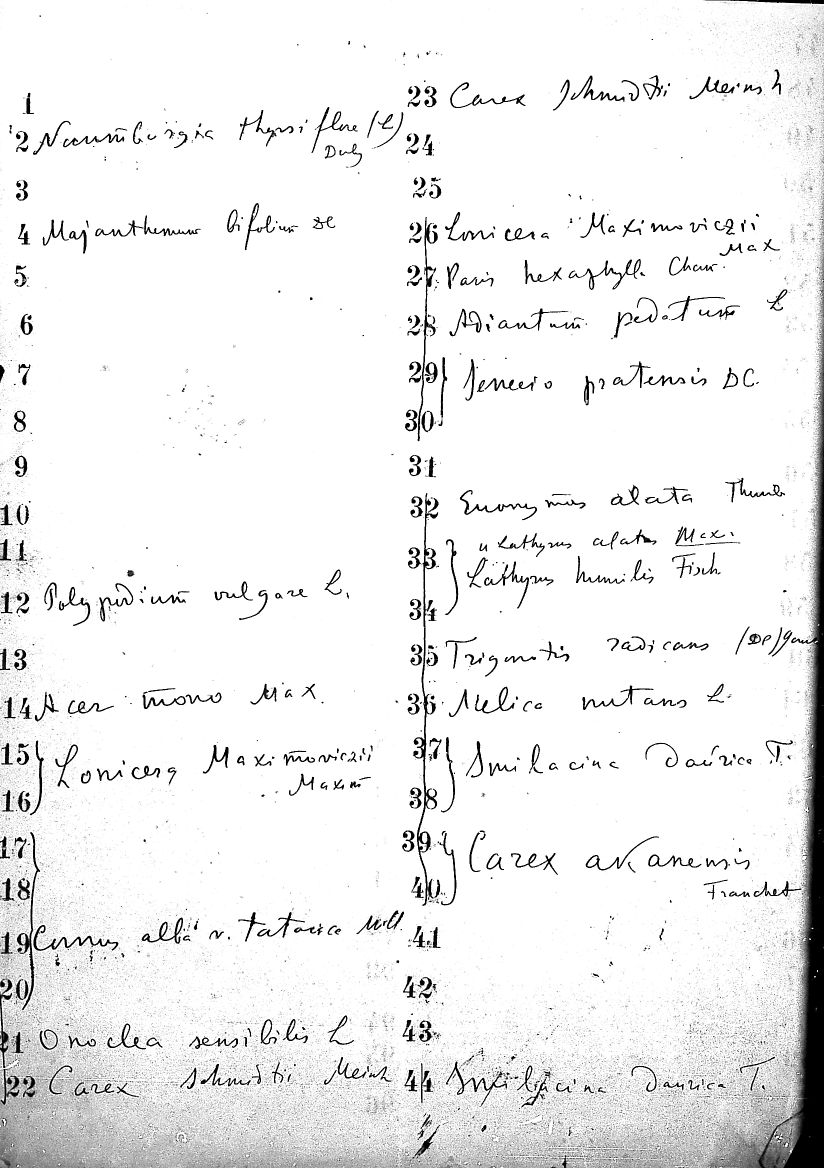 1
2 Naumburgia thyrsiflora (L)
Duby
3
4 Majanthemum bifolium DC
5
6
7
8
9
10
11
12 Polypodium vulgare L.
13
14 Acer mono Max.
15 } Lonicera Maximoviczii
16 Maxim
17
18
19 Cornus alba v. tatarica Mill
20
21 Onoclea sensibilis L
22 Carex Schmidtii Meinsh
23 Carex Schmidtii Meinsh
24
25
26 Lonicera Maximoviczii
Max
27 Paris hexaphylla Cham.
28 Adiantum pedatum L
29 } Senecio pratensis DC.
30
31
32 Euonymus alata Thunb
33 u Lathyrus alatus Max.
} Lathyrus humilis Fisch
34
35 Trigonotis radicans (DP)
36 Melica nutans L.
37 } Smilacina Daurica T.
38
39 } Carex arkanensis
40 Franchet
41
42
43
44 Smilacina Daurica T.